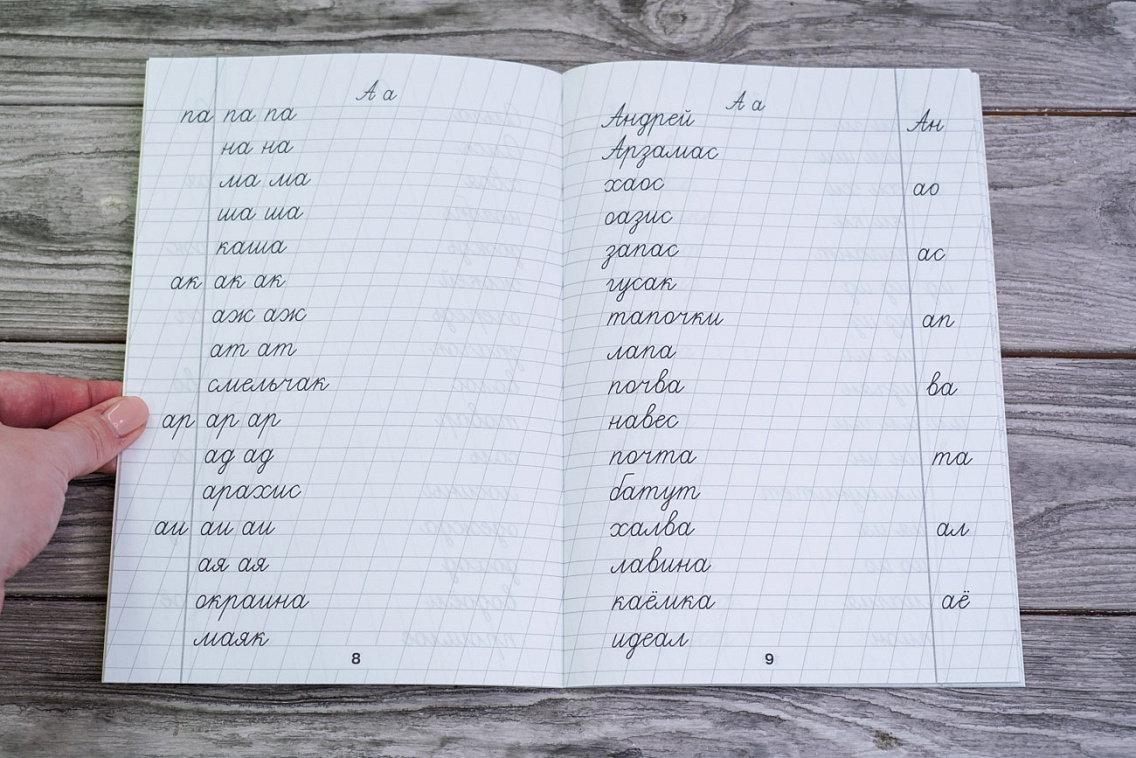 А а
па па па
на на
ма ма
ша ша
каша
ак ак ак
аж аж
ат ат
смельчак
ар ар ар
ад ад
арахис
аи аи аи
ая ая
окраина
маяк
8
А а
Андрей Ан
Арзамас
хаос ао
оазис
запас ас
гусак
тапочки ап
лапа
почва ва
навес
почта та
батут
халва ал
лавина
каёмка аё
идеал
9